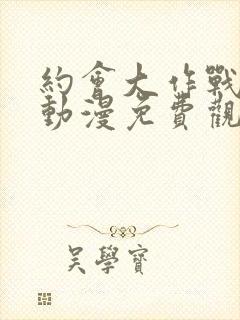 約會大作戰
動漫免費觀
吳學寶